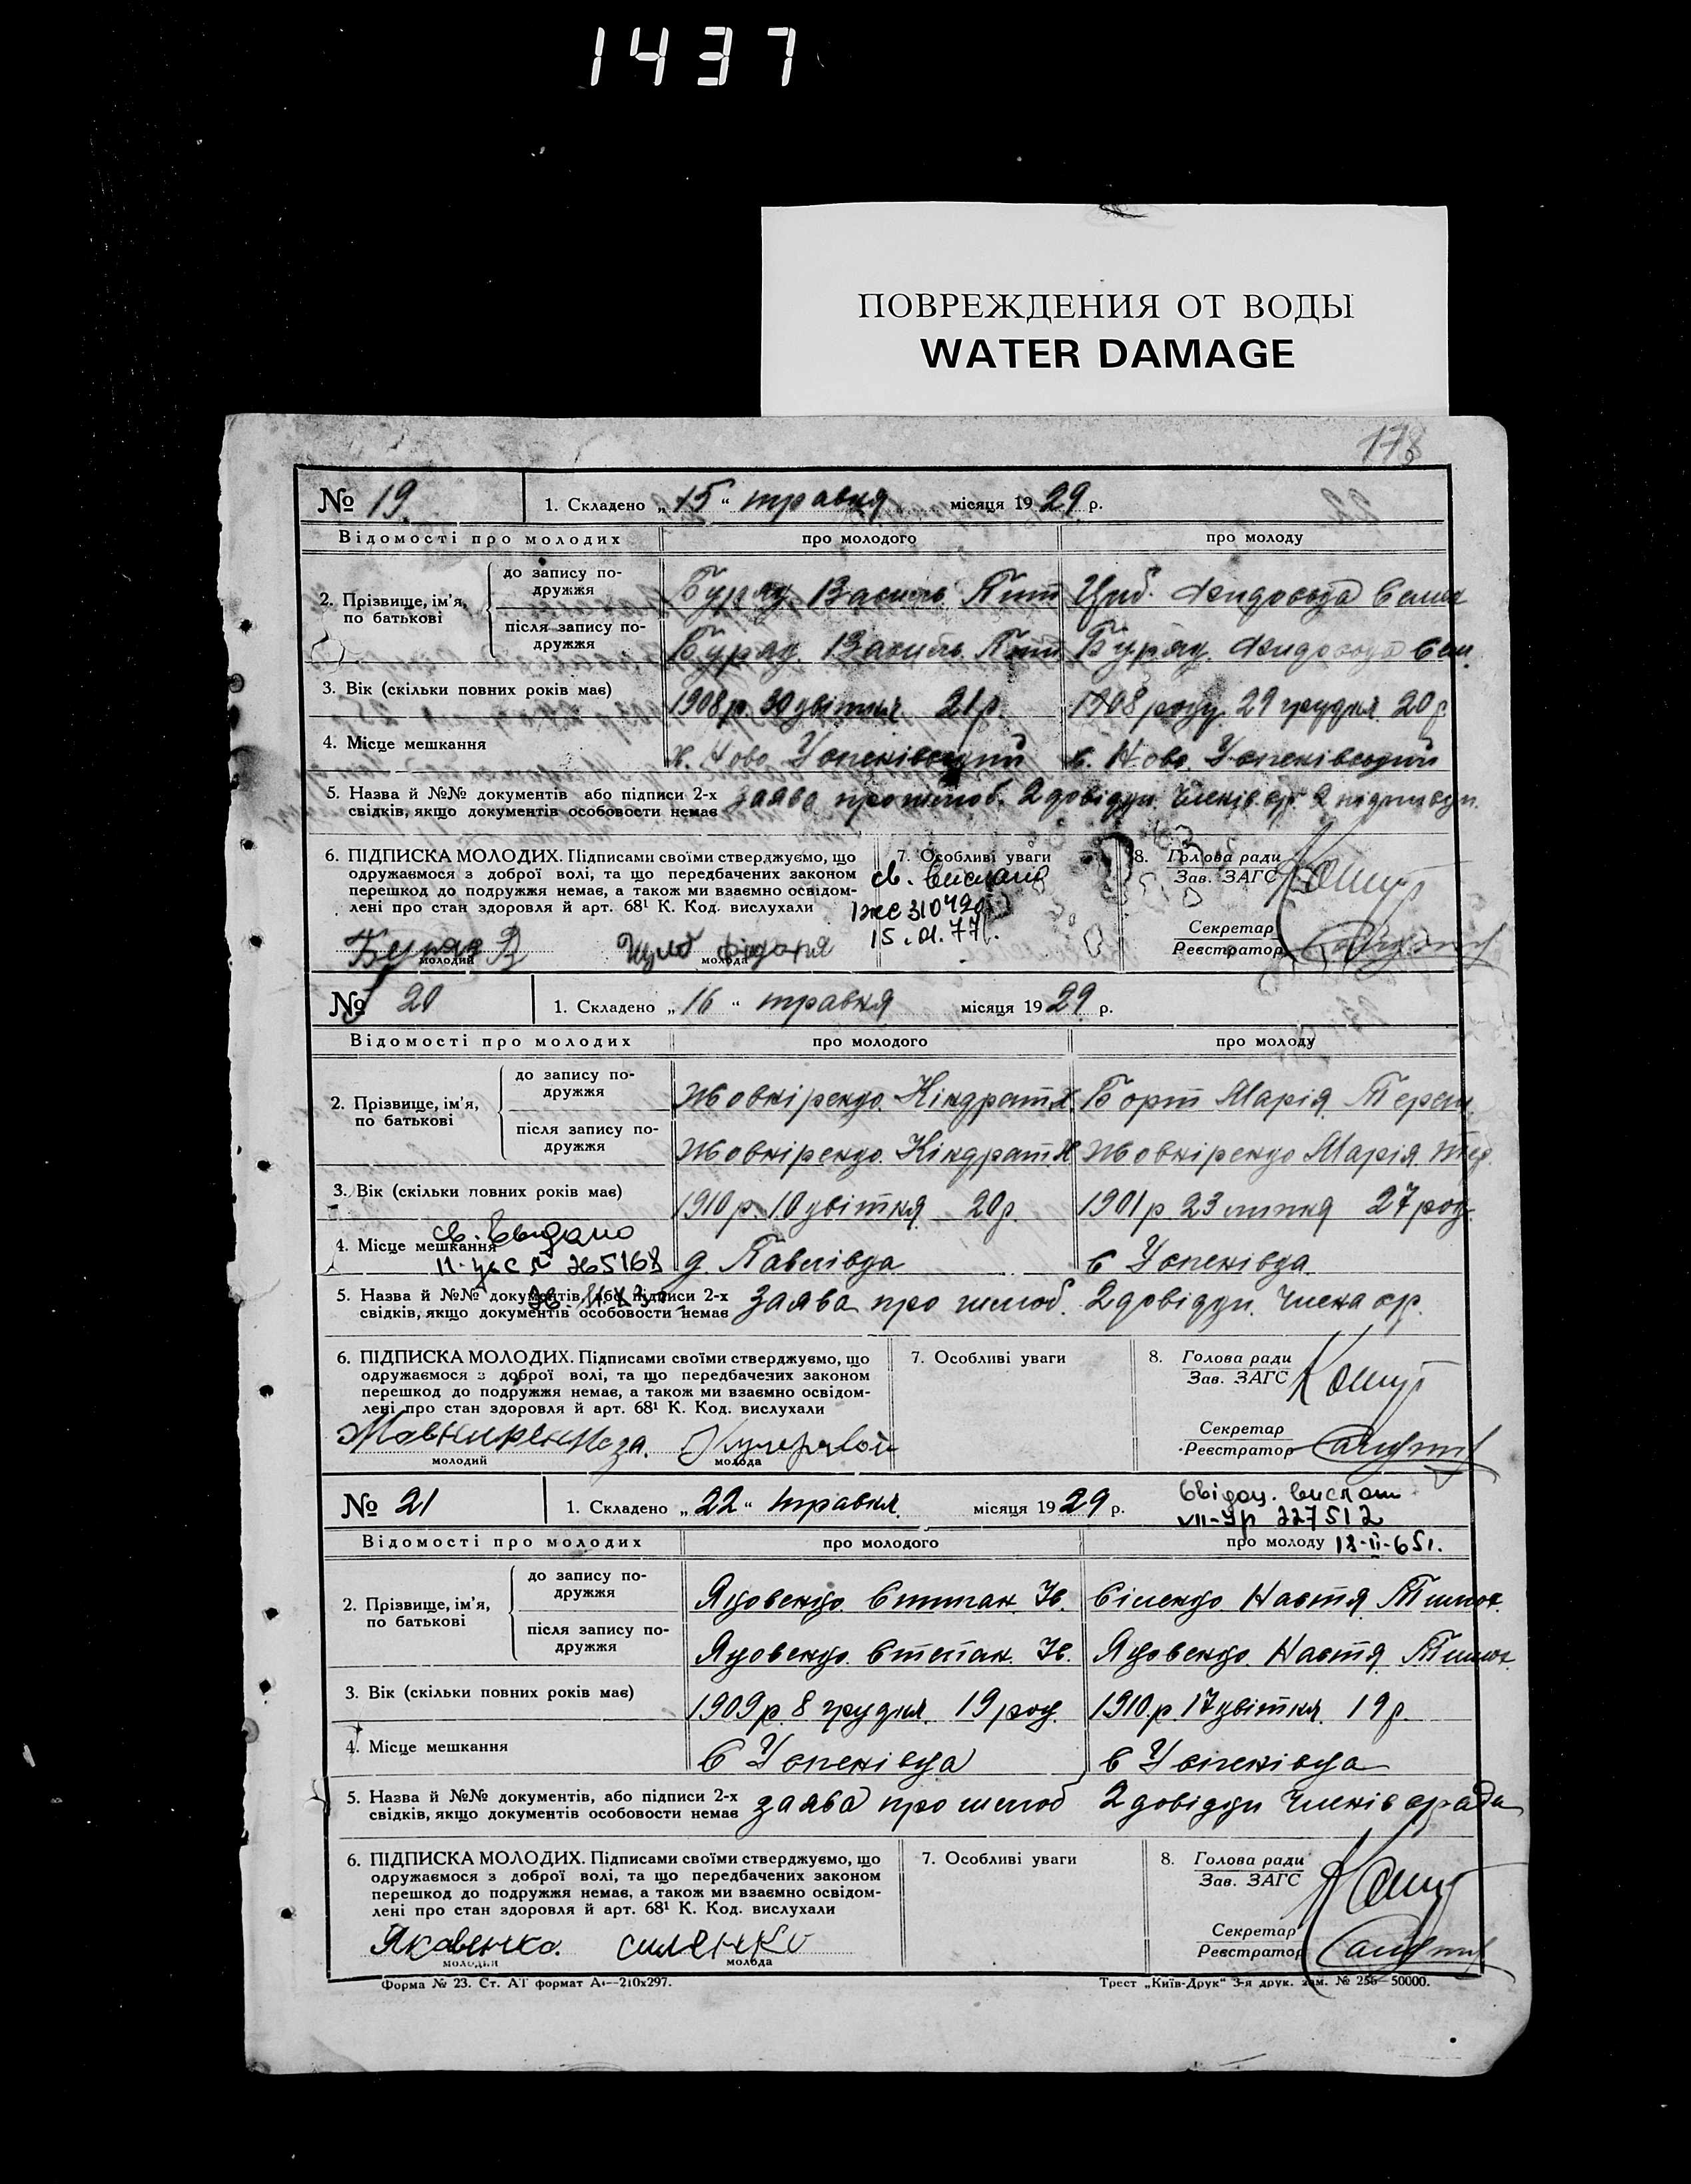 1437
ПОВРЕЖДЕНИЯ ОТ ВОДЫ
WATER DAMAGE
178
№ 19. 1. Складено „15“ травня місяця 1929 р.
Відомості про молодих про молодого про молоду
2. Прізвище, ім'я, по батькові
до запису по-дружжя Буряк Василь Цюб.
після запису по-дружжя Буряк Василь Буряк
3. Вік (скільки повних років має) 1908 р. 30 квітня 21 р. 1908 року 29 грудня 20 р.
4. Місце мешкання х. Ново Успенівський х. Ново Успенівський
5. Назва й №№ документів або підписи 2-х заява про шлюб. 2 довідки членів
свідків, якщо документів особовости немає
6. ПІДПИСКА МОЛОДИХ. Підписами своїми стверджуємо, що
одружаємося з доброї волі, та що передбачених законом
перешкод до подружжя немає, а також ми взаємно освідом-
лені про стан здоровля й арт. 68¹ К. Код. вислухали
Буряк В
молодий молода
7. Особливі уваги
св. вислано
310420
15.01.77г.
8. Голова ради
Зав. ЗАГС
Секретар
Реєстратор
№ 20 1. Складено „16“ травня місяця 1929 р.
Відомості про молодих про молодого про молоду
2. Прізвище, ім'я, по батькові
до запису по-дружжя Жовніренко Кіндрат Борт Марія
після запису по-дружжя Жовніренко Кіндрат Жовніренко Марія
3. Вік (скільки повних років має) 1910 р. 10 квітня 20 р. 1901 р. 23 липня 27 рок.
св. видано
4. Місце мешкання д. Павлівка с Успенівка
5. Назва й №№ документів, або підписи 2-х заява про шлюб. 2 довідки. члена
свідків, якщо документів особовости немає
6. ПІДПИСКА МОЛОДИХ. Підписами своїми стверджуємо, що
одружаємося з доброї волі, та що передбачених законом
перешкод до подружжя немає, а також ми взаємно освідом-
лені про стан здоровля й арт. 68¹ К. Код. вислухали
за.
молодий молода
7. Особливі уваги
8. Голова ради
Зав. ЗАГС
Секретар
Реєстратор
№ 21 1. Складено „22“ травня місяця 1929 р.
Свідоц. вислан
227512
Відомості про молодих про молодого про молоду 18-II-65г.
2. Прізвище, ім'я, по батькові
до запису по-дружжя Яковенко Степан Ів. Сіленко Настя Тимох.
після запису по-дружжя Яковенко Степан Ів. Яковенко Настя Тимох.
3. Вік (скільки повних років має) 1909 р. 8 грудня. 19 рок. 1910 р. 17 квітня. 19 р.
4. Місце мешкання с Успенівка с Успенівка
5. Назва й №№ документів, або підписи 2-х заява про шлюб 2 довідки членів
свідків, якщо документів особовости немає
6. ПІДПИСКА МОЛОДИХ. Підписами своїми стверджуємо, що
одружаємося з доброї волі, та що передбачених законом
перешкод до подружжя немає, а також ми взаємно освідом-
лені про стан здоровля й арт. 68¹ К. Код. вислухали
Яковенко. силенко
молодий молода
7. Особливі уваги
8. Голова ради
Зав. ЗАГС
Секретар
Реєстратор
Форма № 23. Ст. АТ формат А₄—210х297. Трест „Київ-Друк“ 3-я друк. зам. № 256—50000.